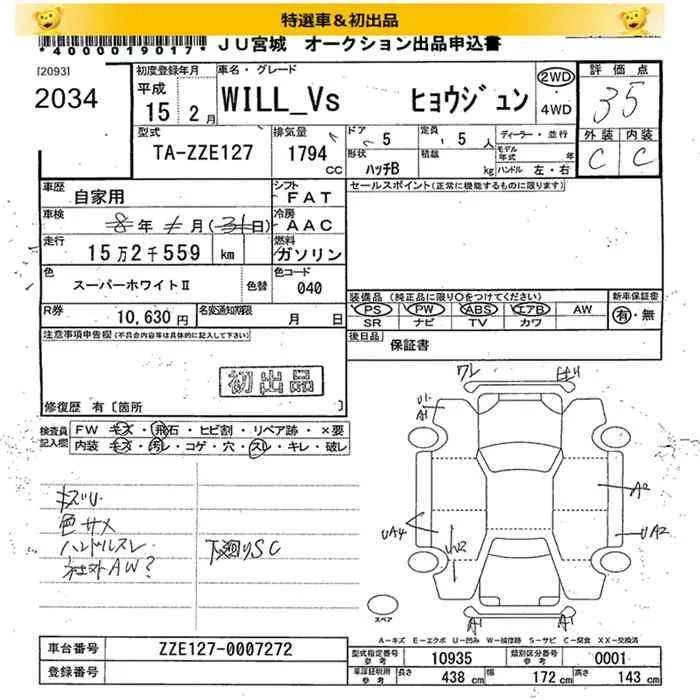 特選車＆初出品
*4000019017* JU宮城 オークション出品申込書
[2093]
2034
初度登録年月
平成
15年 2月
車名・グレード
WILL_Vs ヒョウジュン
2WD
4WD
評価点
3.5
外装 内装
C C
型式
TA-ZZE127
排気量
1794 CC
ドア 5
形状
ハッチB
定員 5人
積載 kg
ディーラー・並行
モデル年式 年
ハンドル 左・右
車歴
自家用
シフト
FAT
車検
8年 1月(31日)
冷房
AAC
走行
15万2千559 km
燃料
ガソリン
色
スーパーホワイトⅡ
色替
色コード
040
R券
10,630円
名変通知期限
月 日
セールスポイント(正常に機能するものに限ります)
装備品 (純正品に限り〇をつけてください)
PS PW ABS エアB AW
SR ナビ TV カワ
新車保証書
有・無
後日品
保証書
注意事項申告欄(不具合内容等は具体的に記入して下さい)
初出品
修復歴 有〔箇所 〕
検査員記入欄
FW キズ・飛石・ヒビ割・リペア跡・×要
内装 キズ・汚レ・コゲ・穴・スレ・キレ・破レ
キズU.
色サメ
ハンドルスレ
社外AW?
下回りSC
ワレ
U1
A1
A2
UA4
UA2
U2
A1
A1
スペア
A−キズ E−エクボ U−凹み W−補修跡 S−サビ C−腐食 XX−交換済
車台番号
ZZE127-0007272
登録番号
型式指定番号 参考
10935
類別区分番号 参考
0001
車庫証明用 参考
長さ 438 cm
幅 172 cm
高さ 143 cm